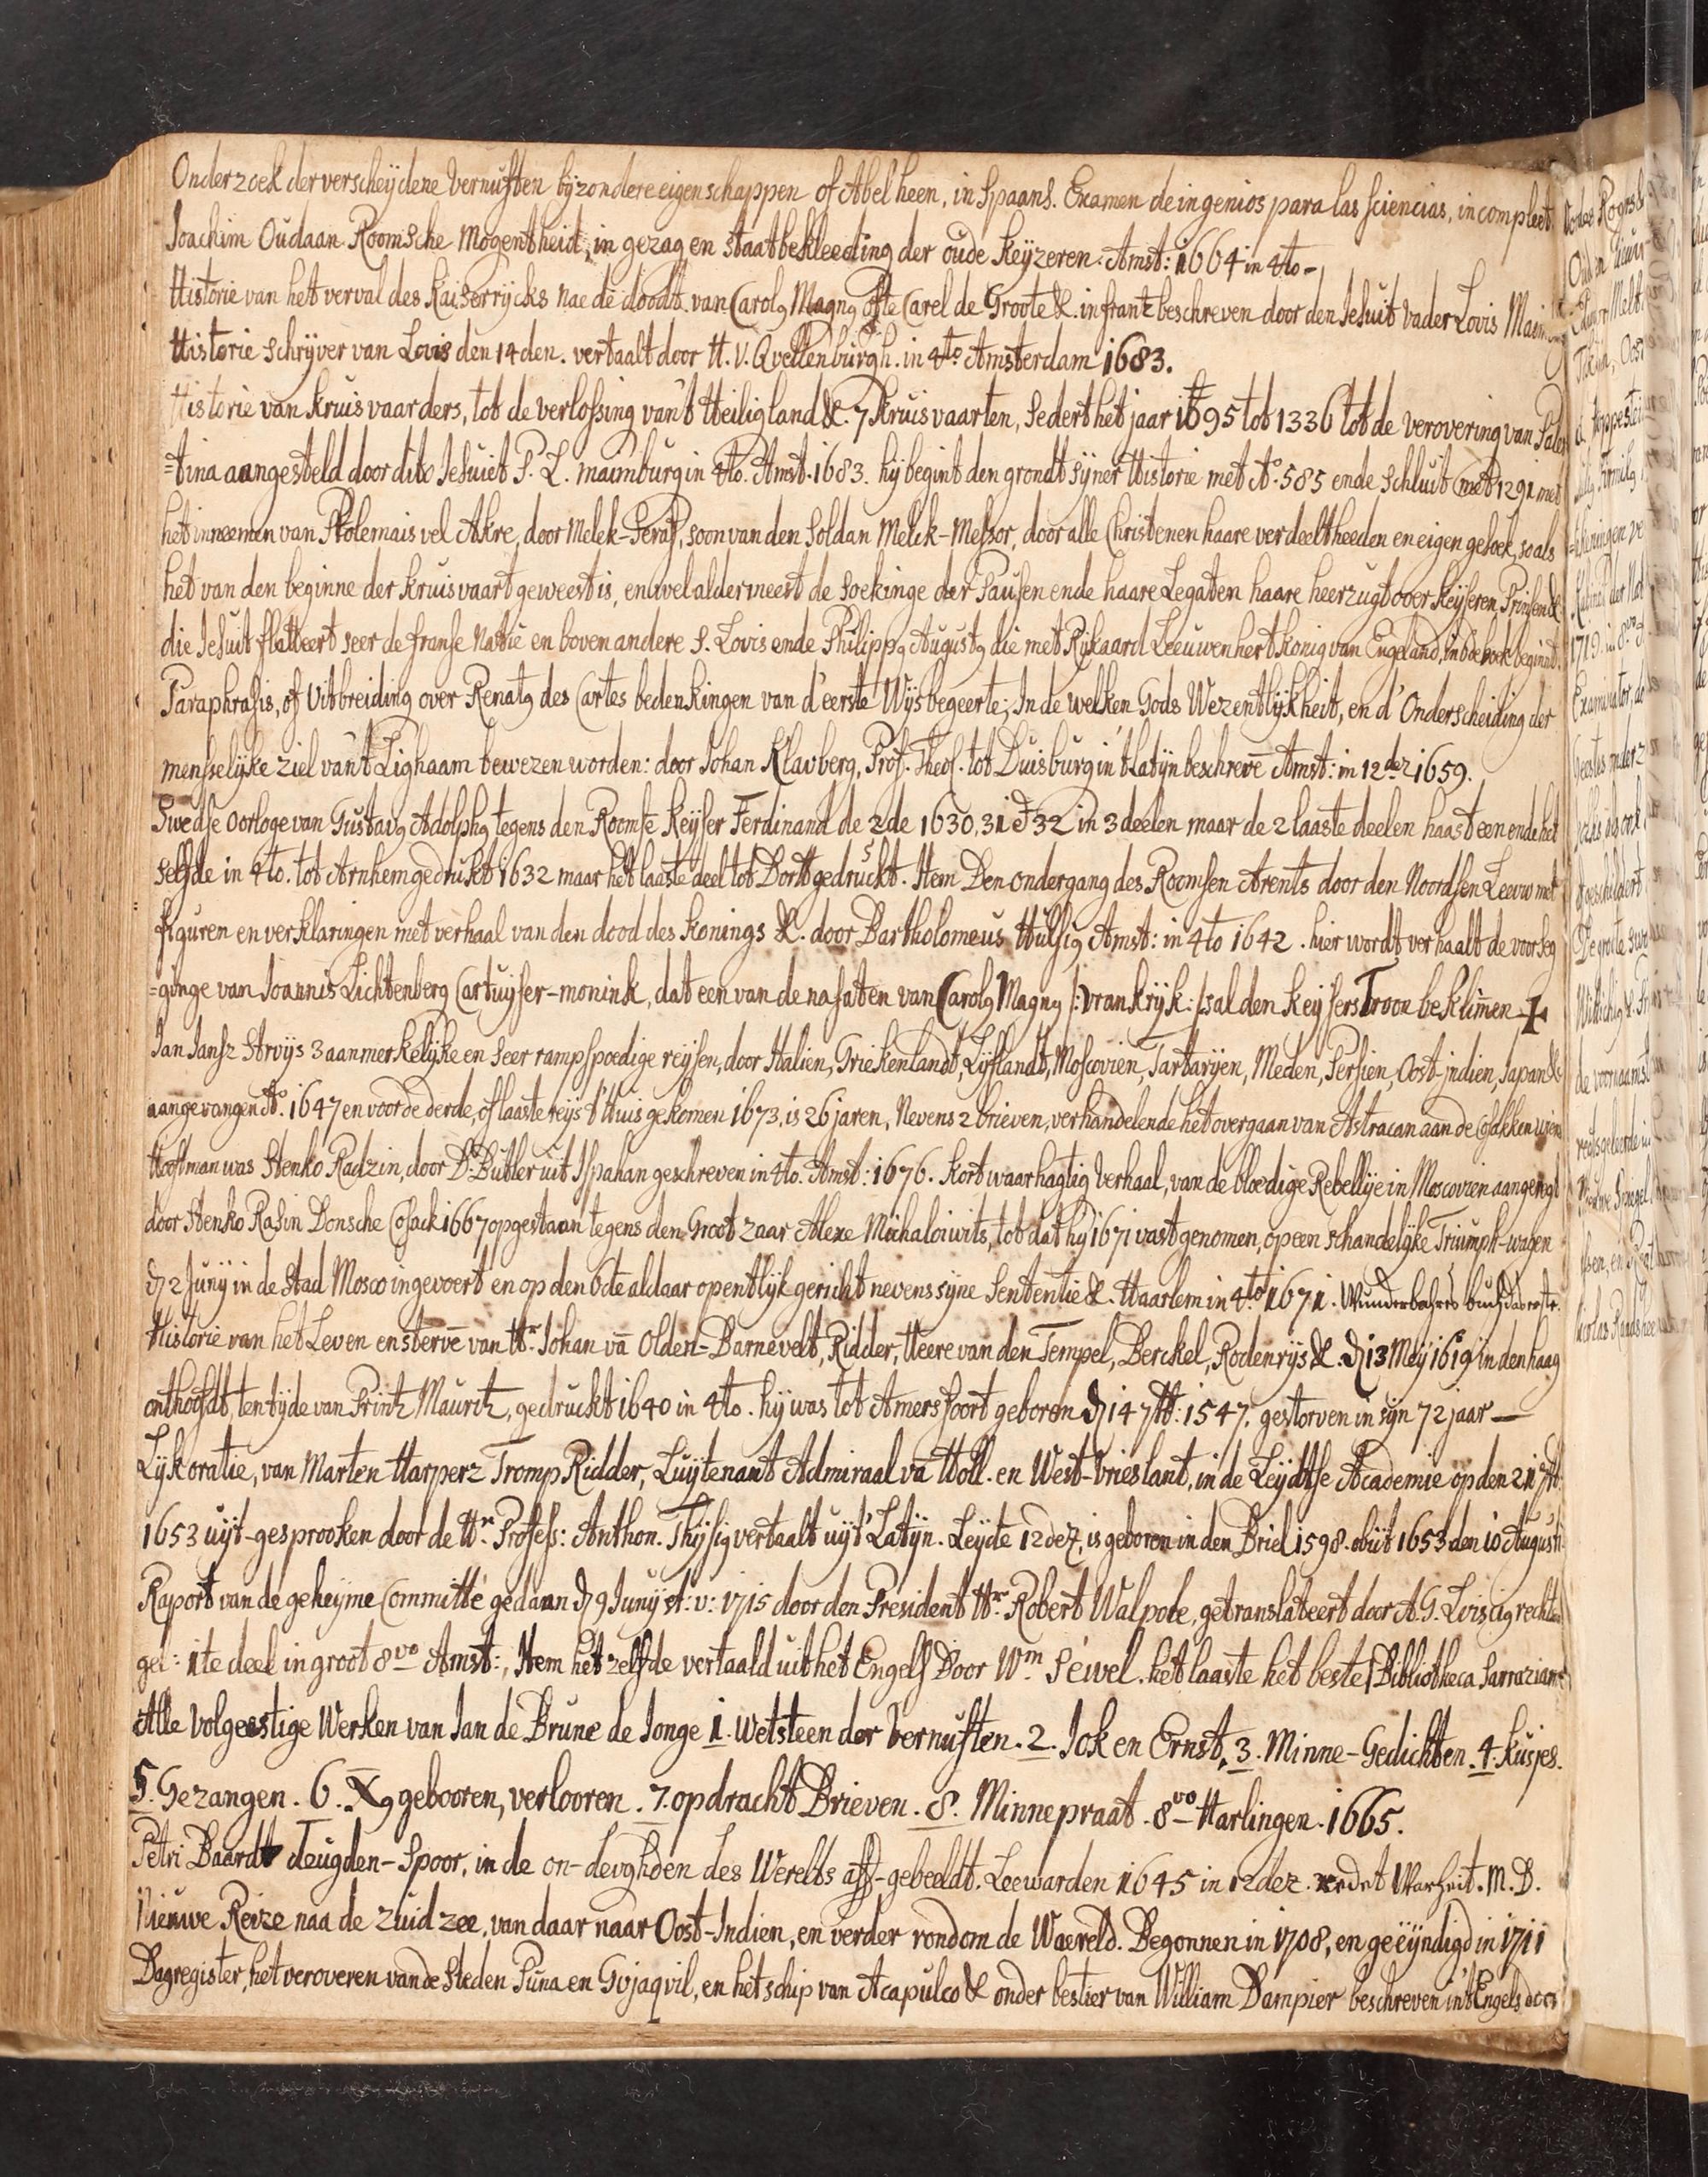 Onderzoek der verscheÿdene vernuften bÿzondere eigenschappen of Abelheen, in Spaans. Examen de ingenios para las sciencias, incompleet
Joachim Oudaan Roomsche Mogentheid, in gezag en staatbekleeding der oude keÿzeren. Amst: 1664 in 4to-
Historie van het verval des Kaiserrÿcks nae de doodt van Carolꝰ Magnꝰ ofte Carel de Groote &. in frantz beschreven door den Jesuit vader Lovis Maim
Historie schrÿver van Lovis den 14den. vertaalt door H. V. Qvellenburgh. in 4to Amsterdam 1683.
Historie van kruisvaarders, tot de verlossing van't Heilig land &. 7 kruisvaarten, sedert het jaar 1695 tot 1336 tot de verovering van Pales
=tina aangesteld door dito Jesuiet P. L. maimburg in 4to. Amst. 1683. hÿ begint den grondt sÿner Historie met Ao. 585 ende schluit met 1291 met
het inneemen van Ptolemais vel Akre, door Melek-Seraf, soon van den Soldan Melek-Messor, door alle Christenen haare verdeeltheeden en eigen gesoek, so als
het van den beginne der kruisvaart geweest is, en wel aldermeest de soekinge der Pausen ende haare Legaten haare heerzugt over keÿseren Prinsen &
die Jesuit flatteert seer de franse Natie en boven andere S. Lovis ende Philippꝰ Augustꝰ die met Rikaard Leeuwenhert konig van Engeland, in boek begint.
Paraphrasis, of Uitbreiding over Renatꝰ des Cartes bedenkingen van d'eerste Wÿsbegeerte; In de welken Gods Wezentlÿkheit, en d' Onderscheiding der
mensselÿke ziel van't Lighaam bewezen worden: door Johan Klavberg, Prof. Theol. tot Duisburg in 't Latÿn beschreve Amst: in 12dez 1659.
Swedse oorloge van Gustavꝰ Adolphꝰ tegens den Roomse keÿser Ferdinand de 2de 1630, 31 & 32 in 3 deelen maar de 2 laaste deelen haast een ende het
selfde in 4to. tot Arnhem gedrukt 1632 maar het laaste deel tot Dortt gedruckt. Item Den ondergang des Roomsen Arents door den Noordsen Leeuw met
figuren en verklaringen met verhaal van den dood des konings &. door Bartholomeus Hulsiꝰ Amst: in 4to 1642. hier wordt verhaalt de voorseg
=ginge van Joannis Lichtenberg Cartuÿser-monink, dat een van de nasaten van Carolꝰ Magnꝰ /: vrankrÿk :/ sal den keÿsers Troon beklimen +
Jan Jansz Strvÿs 3 aanmerkelÿke en seer rampspoedige reÿsen, door Italien, Griekenlandt, Lÿflandt, Moscovien, Tartarÿen, Meden, Persien, Oost-indien, Japan &
aangevangen Ao. 1647 en voor de derde, of laaste reÿs t'huis gekomen 1673, is 26 jaren, Nevens 2 brieven, verhandelende het overgaan van Astracan aan de Cosakken wiens
Hooftman was Stenko Radzin, door D: Butler uit Ispahan geschreven in 4to. Amst: 1676. Kort waarhagtig Verhaal, van de bloedige Rebellÿe in Moscovien aangeregt
door Stenko Rasin Donsche Cosack 1667 opgestaan tegens den Groot zaar Alexe Michaloiwits, tot dat hÿ 1671 vast genomen, op een schandelÿke Triumph-wagen
2 Junÿ in de stad Mosco ingevoert en op den 6te aldaar opentlÿk gericht nevens sÿne Sententie &. Haarlem in 4to 1671. Wunderbahres buch das erste.
Historie van het Leven en sterve van Hr. Johan va Olden-Barnevelt, Ridder, Heere van den Tempel, Berckel, Rodenrÿs &. 13 Meÿ 1619 in den haag
onthooft, ten tÿde van Printz Mauritz, gedruckt 1640 in 4to. hÿ was tot Amersfoort geboren 14 7tt: 1547. gestorven in sÿn 72 jaar —
Lÿk oratie, van Marten Harperz Tromp Ridder, Luÿtenant Admiraal va Holl. en West-Vrieslant, in de Leÿdtse Academie op den 21
1653 uÿt-gesprooken door de Hr. Profess: Anthon. Thÿsiꝰ vertaalt uÿt Latÿn. Leÿde 12dez, is geboren in den Briel 1598. obiit 1653 den 10 Augusti
Raport van de geheÿme Committé gedaan 9 Junÿ st: v: 1715 door den President Hr. Robert Walpole, getranslateert door A. G. rechts
gel: 1te deel in groot 8vo Amst:, Item het zelfde vertaald uit het Engels Door Wm. Séwel. het laaste het beste / Bibliotheca Sarraziana
Alle Volgeestige Werken van Jan de Brune de Jonge 1. wetsteen der Vernuften. 2. Jok en Ernst, 3. Minne-Gedichten. 4. Kusjes.
5. Gezangen. 6. Xꝰ gebooren, verlooren. 7. opdracht Brieven. 8. Minnepraat. 8vo Harlingen. 1665.
Petri Baardt deugden-Spoor, in de on-devghden des Werelts aff-gebeeldt. Leewarden 1645 in 12dez. redet Warheit. M. D.
Nieuwe Reize naa de Zuid zee, van daar naar Oost-Indien, en verder rondom de Waereld. Begonnen in 1708, en geëÿndigd in 1711
Dagregister, het veroveren van de Steden Puna en Gvjaqvil, en het schip van Acapulco & onder bestier van William Dampier beschreven in't Engels door